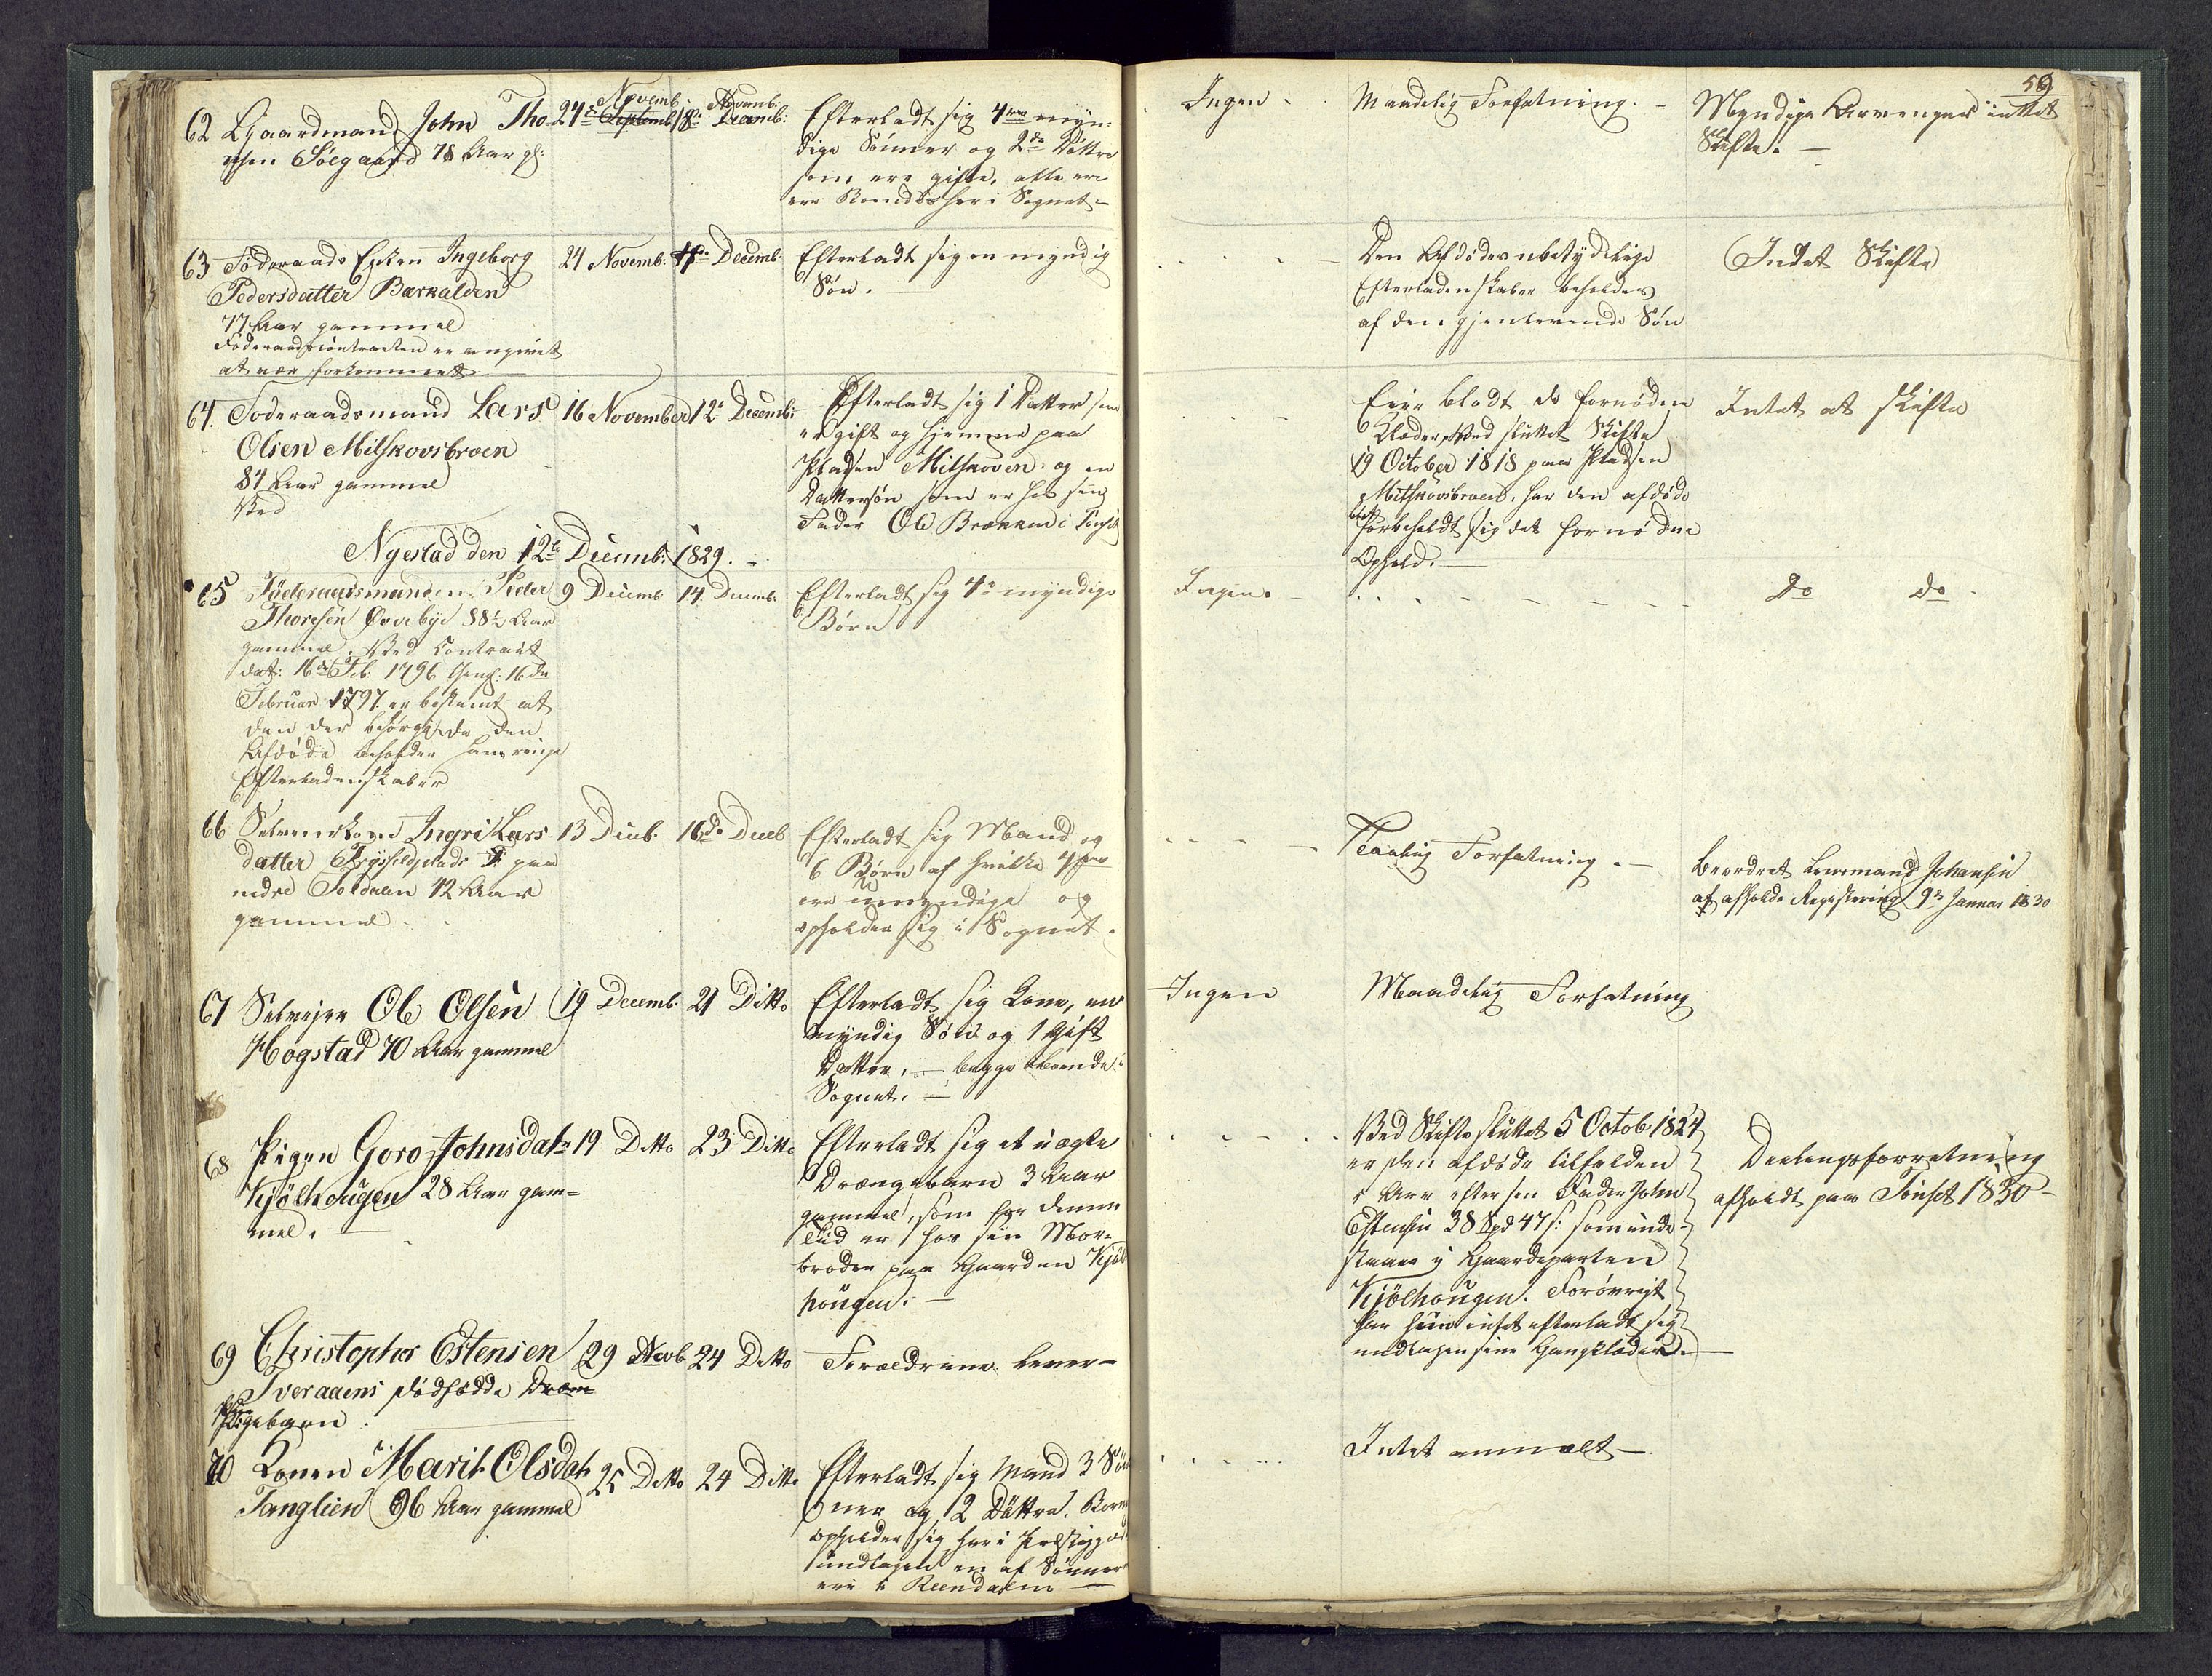 59
62 Gaardmand John Tho-
msen Söegaard 78 Aar gl:
Novemb:
24de Septemb:
Novemb:
18de Decemb:
Efterladt sig 4re myn-
dige Sönner og 2de Döttre
som ere gifte, alle
ere Boende her i Sognet –
Ingen –
Maadelig Forfatning. –
Myndige Arvinger intet
Skifte. –
63 Föderaads Enken Ingeborg
Pedersdatter Barkalden
77 Aar gammel
Föderaadscontracten er angivet
at være forkommet
24 Novemb:
Decemb:
Efterladt sig en myndig
Sön.
Den Afdödes ubetydelige
Efterladenskaber beholdes
af den gjenlevende Sön
Intet Skifte
64. Föderaadsmand Lars
Olsen Mitskovsbroen
84 Aar gammel
Ved
16 November
12te Decemb:
Efterladt sig 1 Datter som
er gift og hjemme paa
Pladsen Mitskoven og en
Dattersön som er hos sin
Fader Ole Brækken i Tönset
Eier blodt de fornödne
Klæder, Ved sluttet Skifte
19 October 1818 paa Pladsen
Mitskovsbroen, har den afdöde
forbeholdt sig det fornödne
Ophold. –
Intet at skifte
Nyestad den 12te Decemb: 1829. –
65 Föderaadsmanden Peder
Thoresen Övrebye 88½ Aar
gammel. Ved Contract
dat: 16de Feb: 1796 16de
Februar 1797 er bestemt at
den der besörgede den
Afdöde beholder hans ringe
Efterladenskaber
9 Decemb
14 Decemb:
Efterladt sig 4re myndige
Börn
Ingen. –
Do Do
66 Selveierkone Ingri Lars-
datter paa
nedre Toldalen 42 Aar
gammel
13 Decb.
16de Decb
Efterladt sig Mand og
6 Börn af hvilke 4re
ere umyndige og
opholder sig i Sognet.
Taalig Forfatning. –
Beordret Lensmand Johansen
at afholde Registrering 9de Januar 1830
67 Selveier Ole Olsen
Hogstad 70 Aar gammel
19 Decemb.
21 Ditto
Efterladt sig Kone, en
myndig Sön og 1 gift
Datter. – begge boende i
Sognet. –
Ingen
Maadelig Forfatning
68 Pigen Goro Johnsdatr
Kjölhougen 28 Aar gam=
mel. –
19 Ditto
23 Ditto
Efterladt sig et uægte
Drængebarn 3 Aar
gammel, som for denne
Tid er hos sin Mor-
broder paa Gaarden Kjöl
hougen. –
Ved Skifte sluttet 5 Octob: 1824
er den afdöde tilfalden
i Arv efter sin Fader John
Estensen 38 Spd 47 s: som inde-
staaer i Gaardeparten
Kjölhougen. Forövrigt
har hun intet efterladt sig
undtagen sine Gangklæder. –
Deelingsforretning
afholdt paa Tönset 1830 –
69 Christopher Estensen
Tveraaens dödfödde Dræn
Pigebarn.
29 Novb
24 Ditto
Forældrene lever –
70 Konen Marit Olsdatr
Tanglien 96 Aar gammel
25 Ditto
24 Ditto
Efterladt sig Mand 3 Sön
ner og 2 Döttre. Börne
opholder sig her i Præstegjæld
undtagen en af Sönner
i Reendalen –
Intet anmeldt –